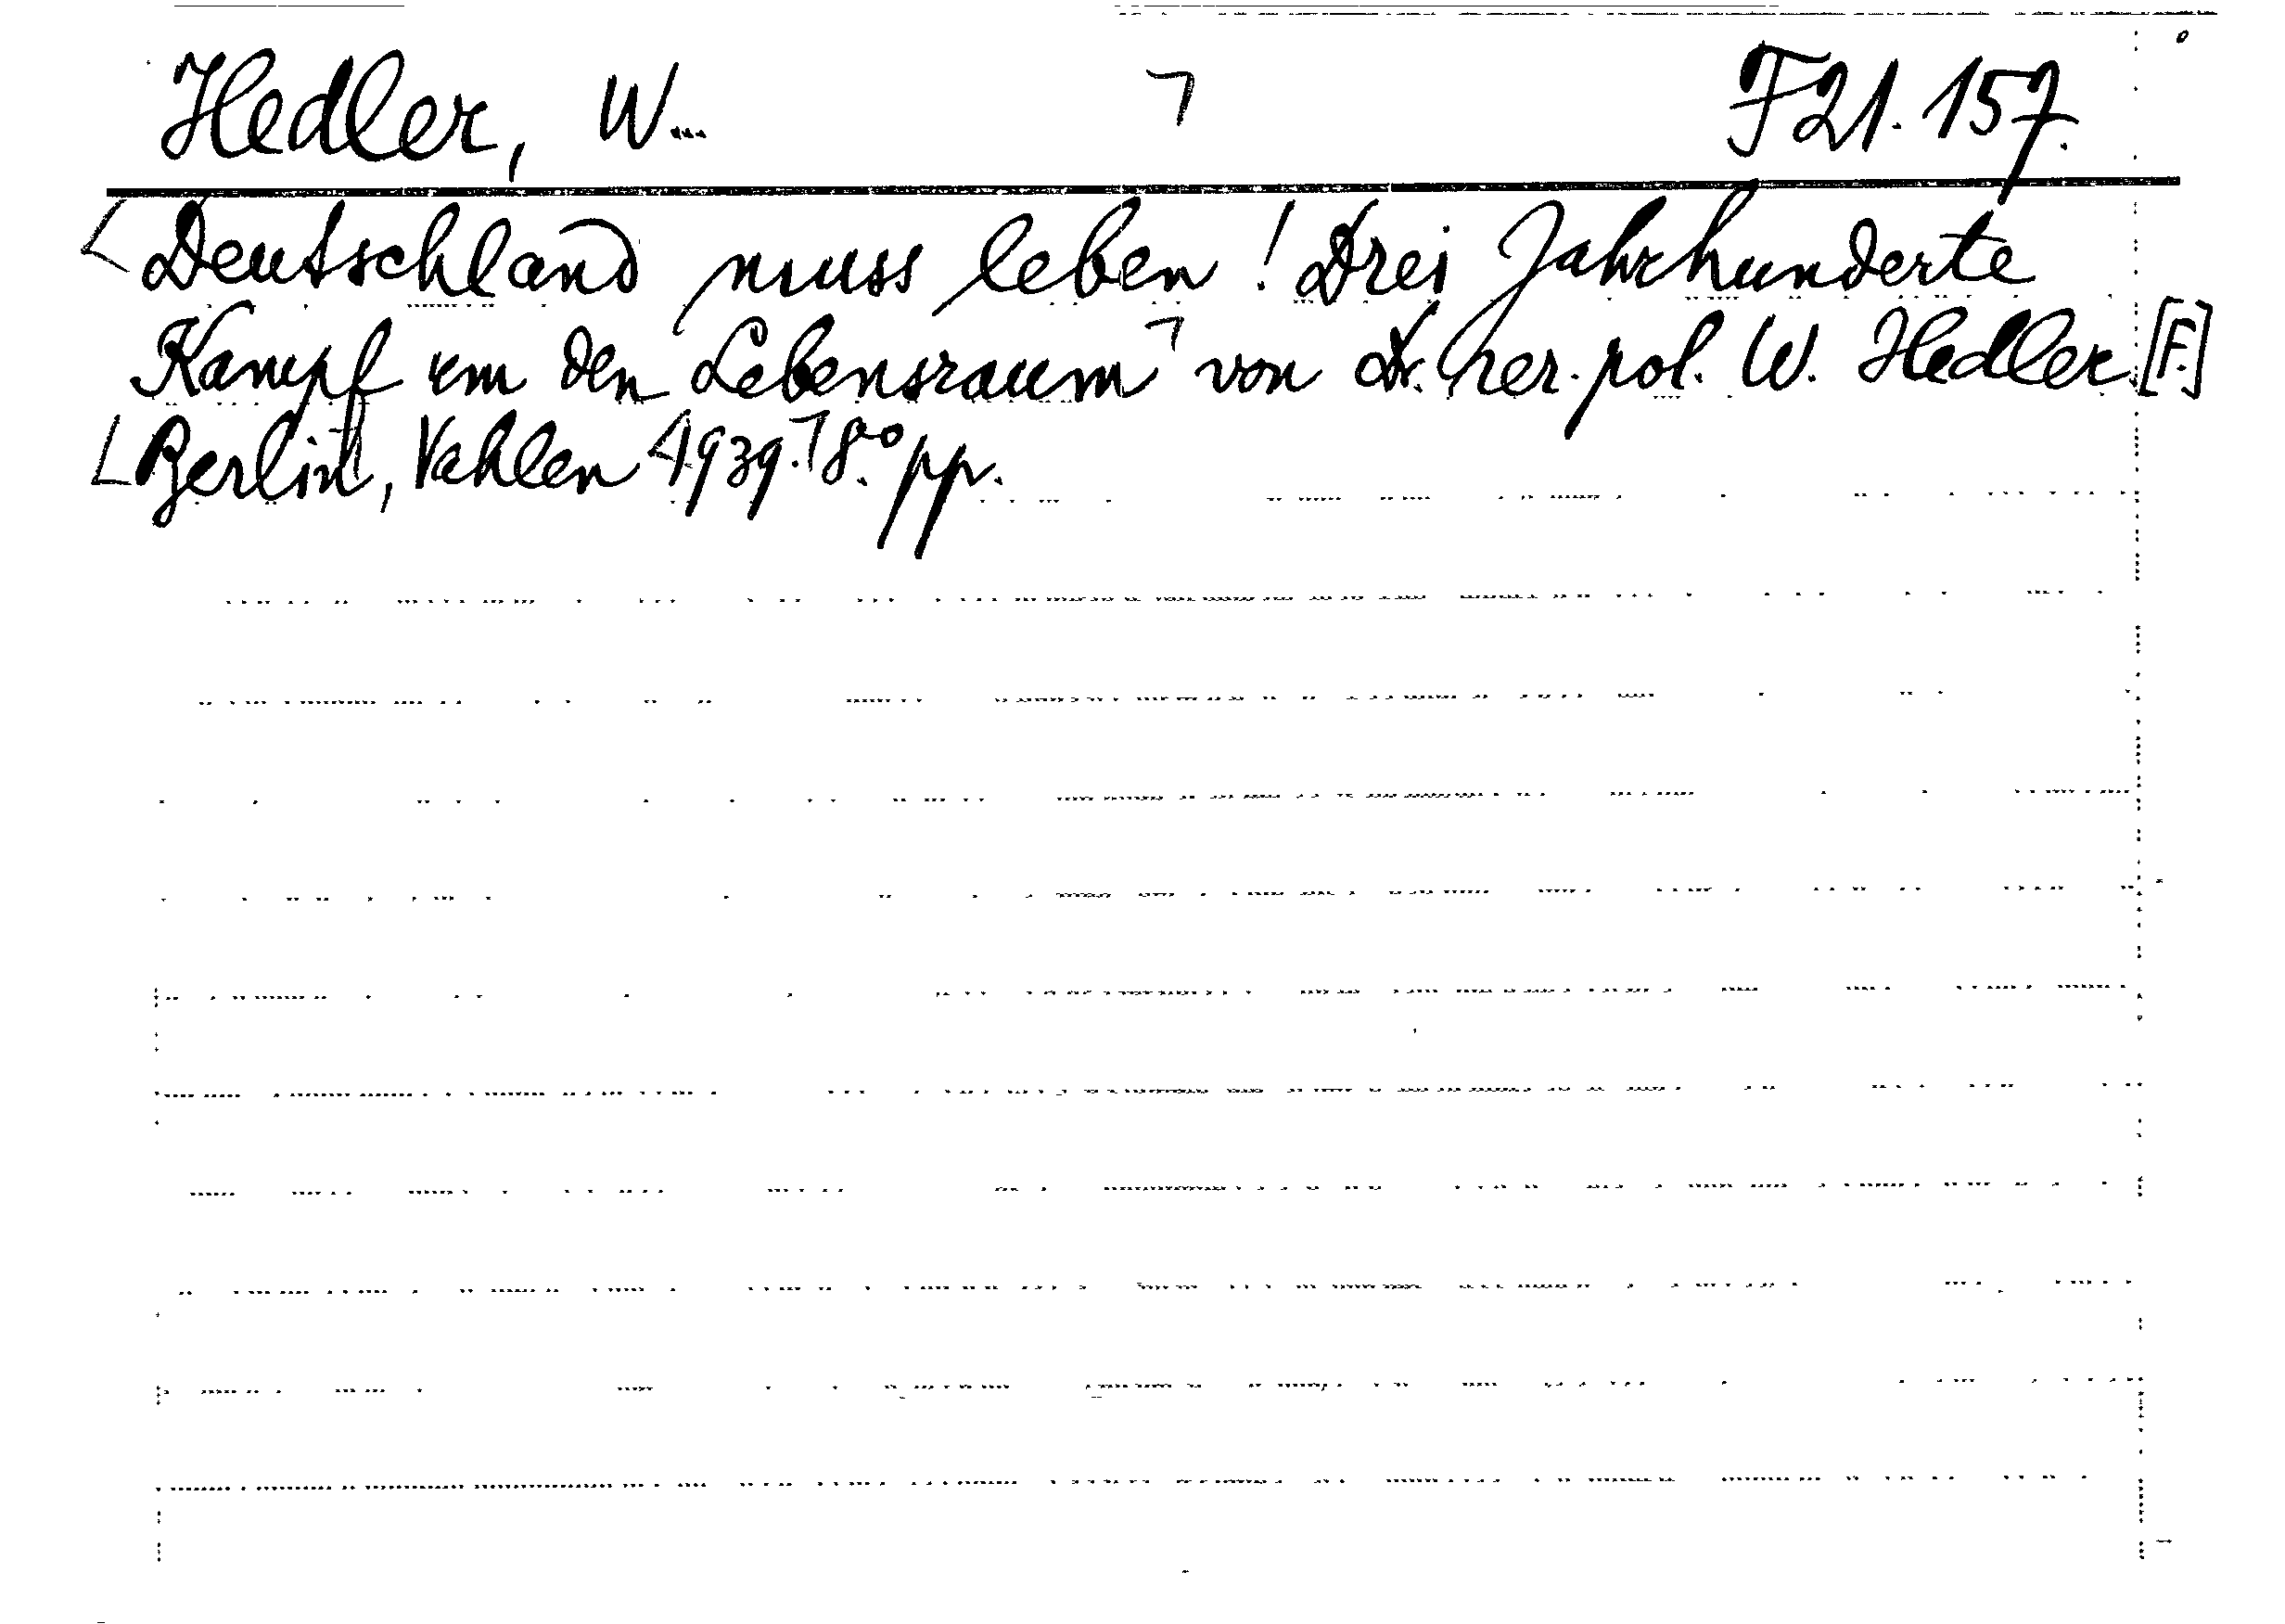 Hedler, W... F 21.157.
Deutschland muss leben! Drei Jahrhunderte
Kampf um den Lebensraum von Dr. rer. pol. W. Hedler. [F.]
Berlin, Vahlen 1939. 8.° pp.